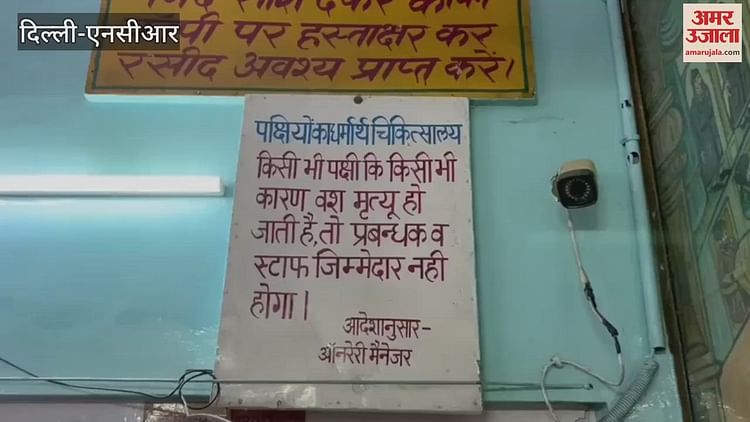 दिल्ली-एनसीआर
अमर
उजाला
amarujala.com
पर हस्ताक्षर कर
रसीद अवश्य प्राप्त करें।
पक्षियों का धर्मार्थ चिकित्सालय
किसी भी पक्षी कि किसी भी
कारण वश मृत्यू हो
जाती है, तो प्रबन्धक व
स्टाफ जिम्मेदार नही
होगा।
आदेशानुसार-
ऑनरेरी मैनेजर